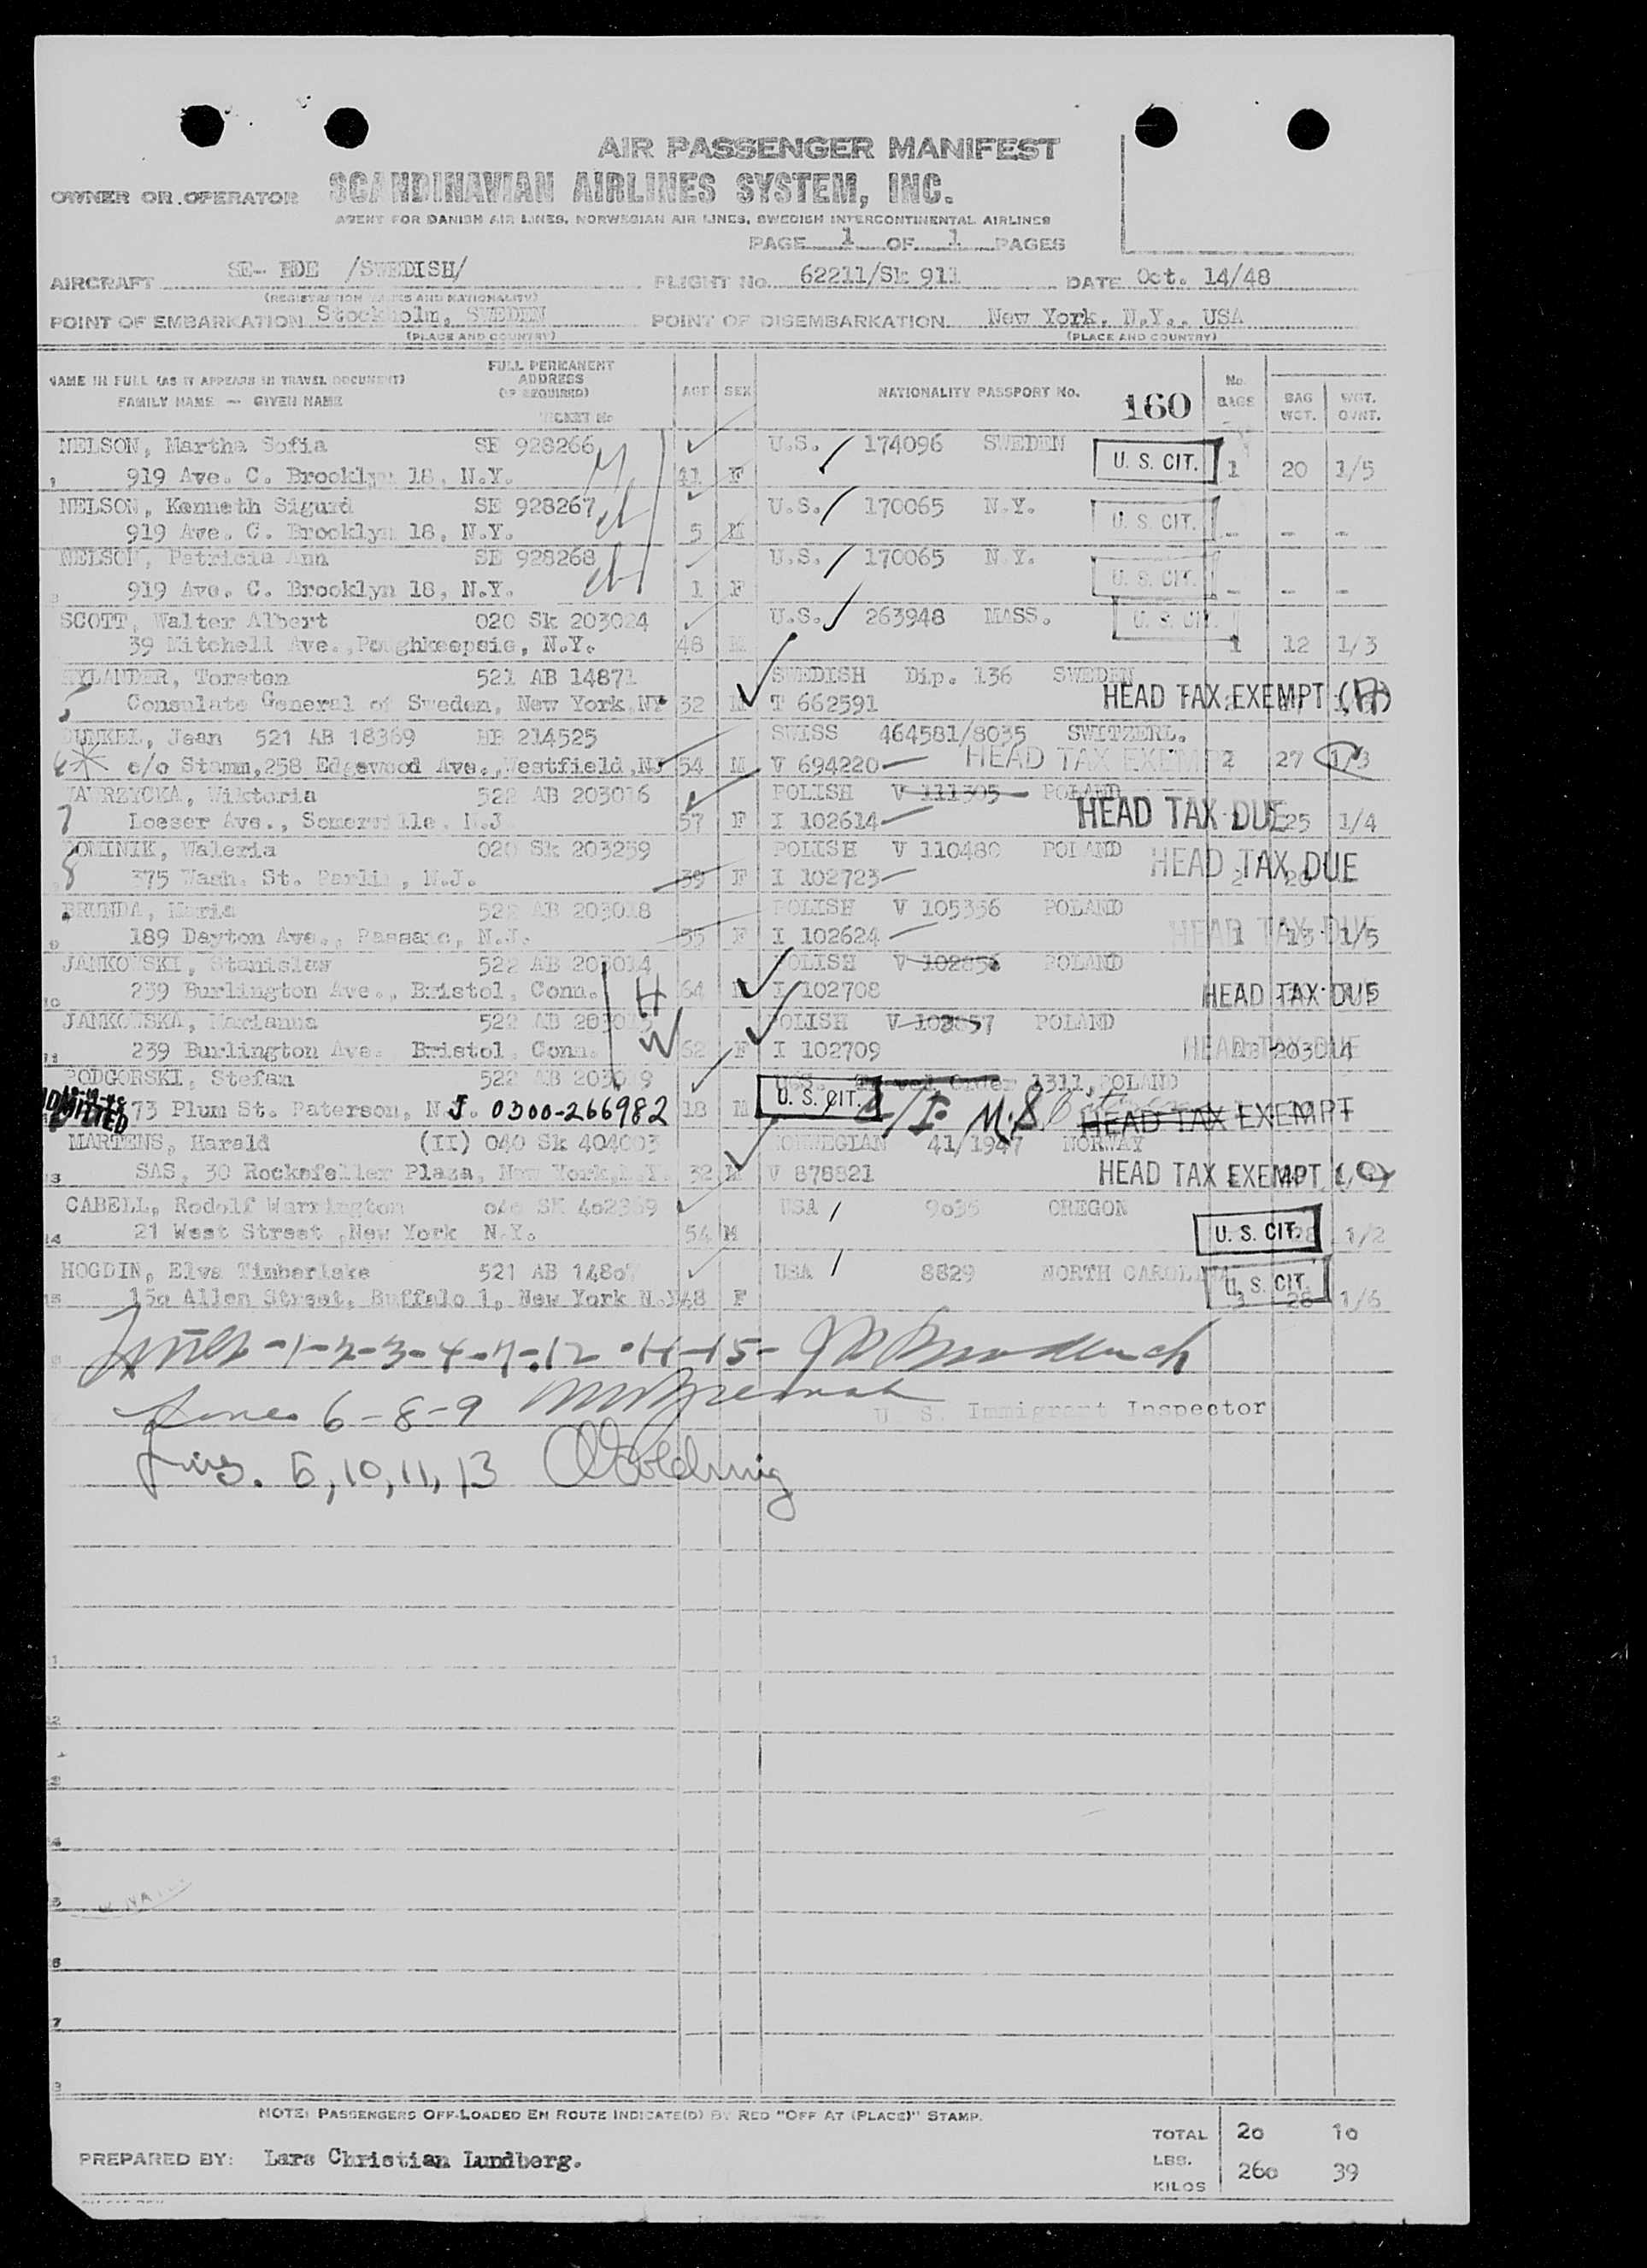 AIR PASSENGER MANIFEST
OWNER OR OPERATOR SCANDINAVIAN AIRLINES SYSTEM, INC.
AGENT FOR DANISH AIR LINES, NORWEGIAN AIR LINES, SWEDISH INTERCONTINENTAL AIRLINES
PAGE 1 OF 1 PAGES
AIRCRAFT SE- BDE /SWEDISH/ FLIGHT No. 62211/Sk 911 DATE Oct. 14/48
(REGISTRATION MARKS AND NATIONALITY)
POINT OF EMBARKATION Stockholm, SWEDEN POINT OF DISEMBARKATION New York, N.Y., USA
(PLACE AND COUNTRY) (PLACE AND COUNTRY)
NAME IN FULL (AS IT APPEARS IN TRAVEL DOCUMENT) FULL PERMANENT ADDRESS (IF REQUIRED) AGE SEX NATIONALITY PASSPORT No. 160 No. BAGS BAG WGT. WGT. OVWT.
FAMILY NAME — GIVEN NAME TICKET No
NELSON, Martha Sofia SE 928266 U.S. 174096 SWEDEN U. S. CIT.
1 919 Ave. C. Brooklyn 18, N.Y. 41 F 1 20 1/5
NELSON, Kenneth Sigurd SE 928267 U.S. 170065 N.Y. U. S. CIT.
919 Ave. C. Brooklyn 18, N.Y. 5 M - - -
NELSON, Patricia Ann SE 928268 U.S. 170065 N.Y. U. S. CIT.
3 919 Ave. C. Brooklyn 18, N.Y. 1 F - - -
SCOTT, Walter Albert 020 Sk 203024 U.S. 263948 MASS. U. S. CIT.
39 Mitchell Ave., Poughkeepsie, N.Y. 48 M 1 12 1/3
NYLANDER, Torsten 521 AB 14871 SWEDISH Dip. 136 SWEDEN
5 Consulate General of Sweden, New York NY 32 M T 662591 HEAD TAX EXEMPT
DUNKEL, Jean 521 AB 18369 HB 214525 SWISS 464581/8035 SWITZERL.
6 c/o Stamm, 258 Edgewood Ave., Westfield, NJ 54 M V 694220 HEAD TAX EXEMPT 2 27 1/3
WAWRZYCKA, Wiktoria 522 AB 203016 POLISH V 111305 POLAND
7 Loeser Ave., Somerville. N.J 57 F I 102614 HEAD TAX DUE 25 1/4
DOMINIK, Waleria 020 Sk 203259 POLISH V 110480 POLAND
8 375 Wash. St. Parlin, N.J. 39 F I 102723 HEAD TAX DUE
BRUNDA, Maria 522 AB 203018 POLISH V 105356 POLAND
9 189 Dayton Ave., Passaic, N.J. 35 F I 102624 HEAD TAX DUE 1 13 1/5
JANKOWSKI, Stanislaw 522 AB 203014 POLISH V 102856 POLAND
10 239 Burlington Ave., Bristol, Conn. H 64 M I 102708 HEAD TAX DUE
JANKOWSKA, Marianna 522 AB 203015 POLISH V 102857 POLAND
11 239 Burlington Ave. Bristol, Conn. W 62 F I 102709 HEAD TAX DUE 203014
PODGORSKI, Stefan 522 AB 203019 U.S. Travel Order 1311, POLAND
ADMITTED 73 Plum St. Paterson, N.J. 0300-266982 18 M U. S. CIT. HEAD TAX EXEMPT
MARTENS, Harald (II) 040 Sk 404003 NORWEGIAN 41/1947 NORWAY
13 SAS, 30 Rockefeller Plaza, New York, N.Y. 32 M V 878821 HEAD TAX EXEMPT
CABELL, Rodolf Warrington SK 402369 USA 9035 OREGON
14 21 West Street, New York N.Y. 54 M U. S. CIT. 1/2
HOGDIN, Elva Timberlake 521 AB 14807 USA 8829 NORTH CAROLINA U. S. CIT.
15 150 Allen Street, Buffalo 1, New York N.Y. 48 F 3 26 1/6
-1-2-3-4-7-12-14-15-
6-8-9
U. S. Immigrant Inspector
5, 10, 11, 13
NOTE: PASSENGERS OFF-LOADED EN ROUTE INDICATE(D) BY RED "OFF AT (PLACE)" STAMP.
TOTAL 20 10
PREPARED BY: Lars Christian Lundberg.
LBS. 260 39
KILOS